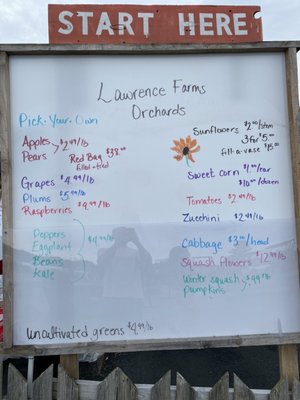 START HERE
Lawrence Farms
Orchards
Pick. Your. Own
Apples
Pears
$2.49/lb
Red Bag $38.00
Filled + tied
Grapes $4.99/lb
Plums $5.99/lb
Raspberries $9.99/lb
Peppers
Eggplant
Beans
Kale
$4.99/lb
uncultivated greens $4.99/lb
Sunflowers $2.00/stem
3 for $5.00
fill-a-vase $15.00
Sweet corn $1.00/ear
$10.00/dozen
Tomatoes $2.49/lb
Zucchini $2.49/lb
Cabbage $3.00/head
Squash Flowers $12.99/lb
Winter squash
pumpkins